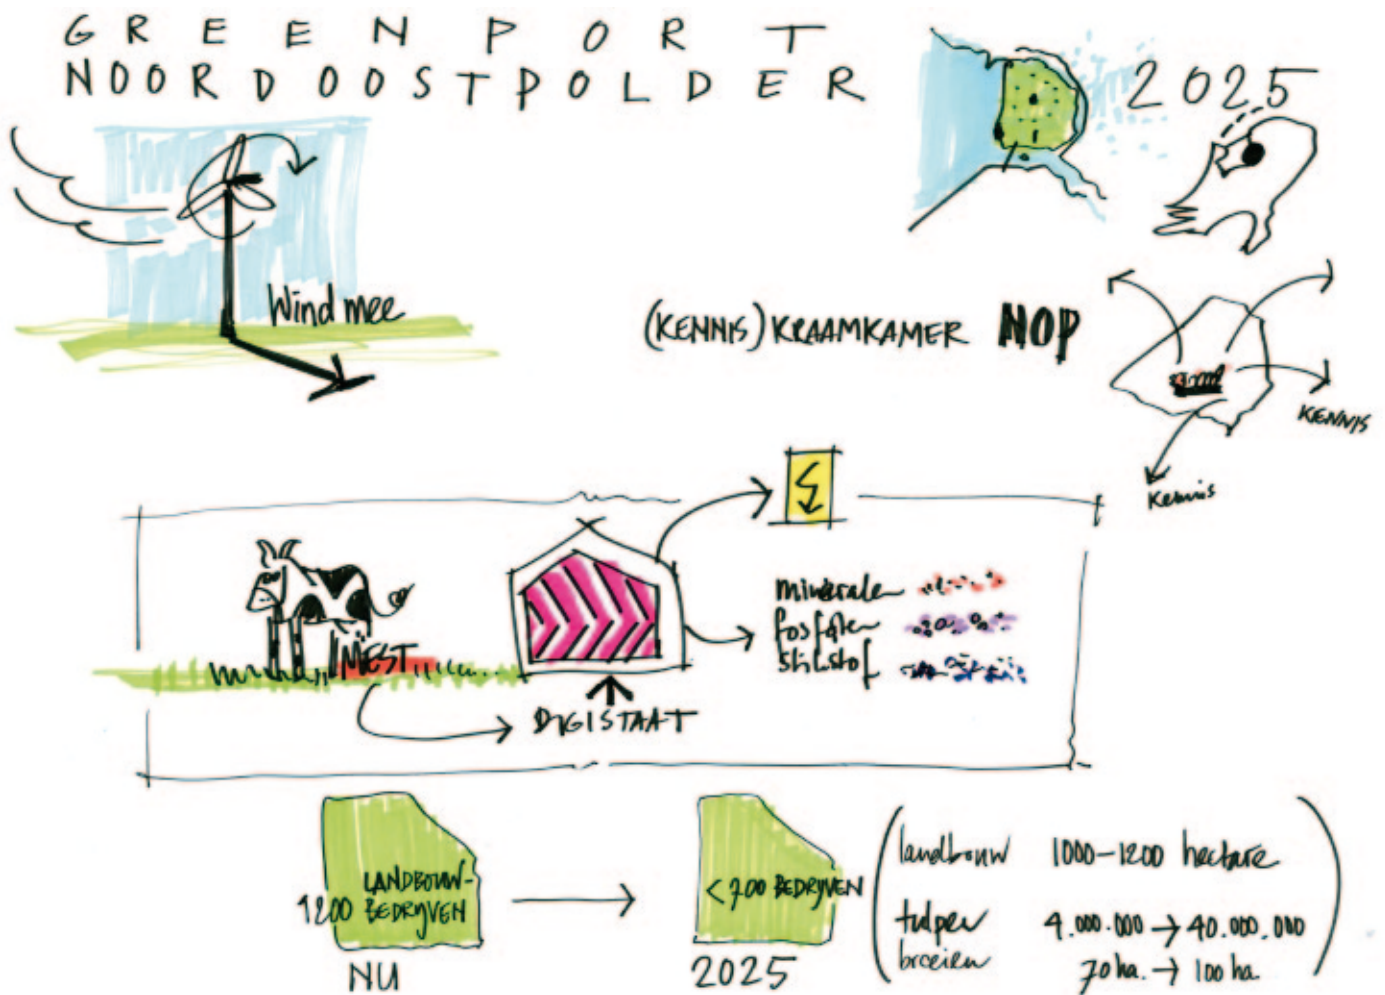 GREENPORT
NOORDOOSTPOLDER
2025
Wind mee
(KENNIS) KRAAMKAMER NOP
KENNIS
Kennis
MEST
DIGISTAAT
mineralen
fosfaten
stikstof
1200 LANDBOUW-
BEDRYVEN
NU
<700 BEDRYVEN
2025
landbouw 1000-1200 hectare
tulpen 4.000.000 → 40.000.000
broeien 70 ha. → 100 ha